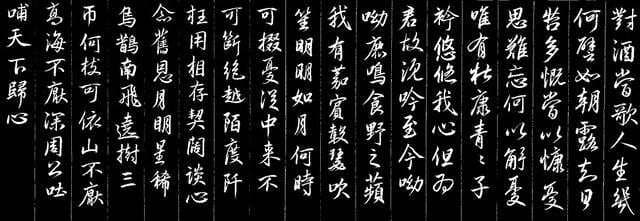 對酒當歌人生幾
何譬如朝露去日
苦多慨當以慷憂
思難忘何以解憂
唯有杜康青々子
衿悠悠我心但為
君故沈吟至今呦
呦鹿鳴食野之蘋
我有嘉賓鼓瑟吹
笙明明如月何時
可掇憂從中来不
可斷絕越陌度阡
枉用相存契闊談心
念舊恩月明星稀
烏鵲南飛遶樹三
帀何枝可依山不厭
高海不厭深周公吐
哺天下歸心